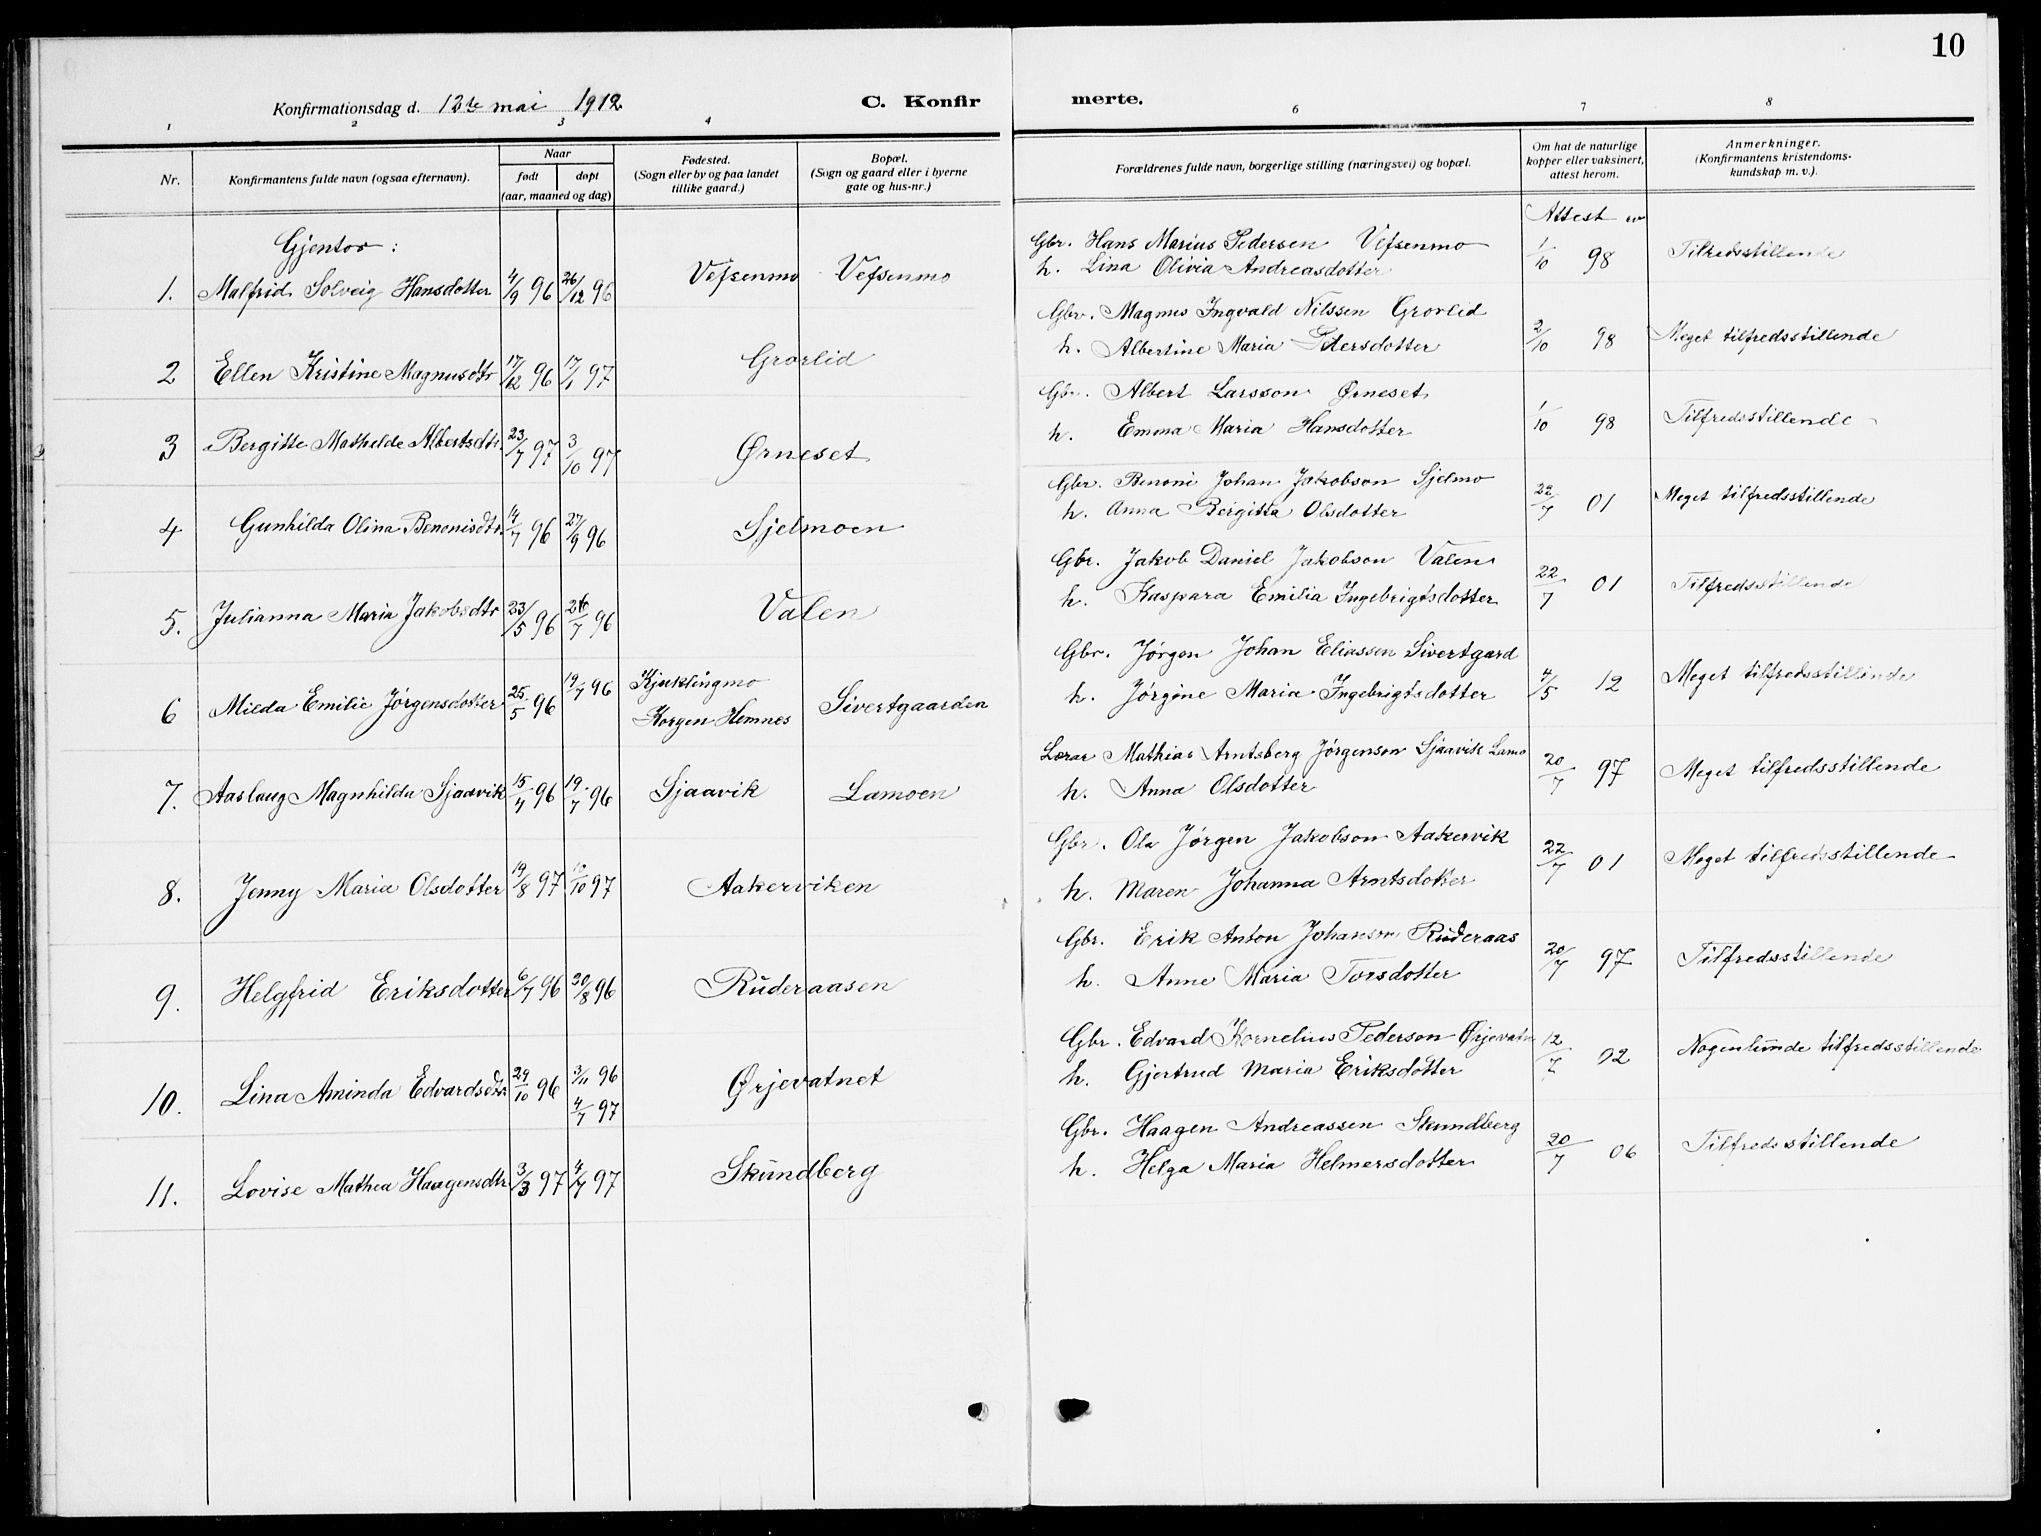 10
Konfirmationsdag d. 12te mai 1912
C. Konfir
merte.
1 2 3 4 6 7 8
Nr.
Konfirmantens fulde navn (ogsaa efternavn).
Naar
født
døpt
(aar, maaned og dag)
Fødested.
(Sogn eller by og paa landet
tillike gaard.)
Bopæl.
(Sogn og gaard eller i byerne
gate og hus-nr.)
Forældrenes fulde navn, borgerlige stilling (næringsvei) og bopæl.
Om hat de naturlige
kopper eller vaksinert,
attest herom.
Anmerkninger.
(Konfirmantens kristendoms-
kundskap m. v.).
Attest av
Gjentor:
1. Malfrid Solveig Hansdotter 4/9 96 26/12 96 Vefsenmo Vefsenmo
Gbr. Hans Marius Pedersen Vefsenmo
h. Lina Olivia Andreasdotter
1/10 98 Tilfredsstillende
2 Ellen Kristine Magnusdtr 17/12 96 17/1 97 Grorlid
Gbr. Magnus Ingvald Nilssen Grorlid
h. Albertine Maria Pedersdotter
2/10 98 Meget tilfredsstillende
3 Bergitte Mathilde Albertsdtr. 23/7 97 3/10 97 Ørneset
Gbr. Albert Larsson Ørneset
h. Emma Maria Hansdotter
1/10 98 Tilfredsstillende
4 Gunhilda Olina Benonisdtr. 14/7 96 27/9 96 Sjelmoen
Gbr. Benoni Johan Jakobson Sjelmo
h. Anna Bergitta Olsdotter
22/7 01 Meget tilfredsstillende
5. Julianna Maria Jakobsdtr 23/5 96 26/7 96 Valen
Gbr. Jakob Daniel Jakobson Valen
h. Kaspara Emilia Ingebrigtsdotter
22/7 01 Tilfredsstillende
6 Milda Emilie Jørgensdotter 25/5 96 19/7 96 Kjuklingmo
Korgen Hemnes Sivertgaarden
Gbr. Jørgen Johan Eliassen Sivertgard
h. Jørgine Maria Ingebrigtsdotter
4/5 12 Meget tilfredsstillende
7. Aaslaug Magnhilda Sjaavik 15/4 96 19/7 96 Sjaavik Lamoen
Lærar Mathias Arntsberg Jørgenson Sjaavik Lamo
h. Anna Olsdotter
20/7 97 Meget tilfredsstillende
8. Jenny Maria Olsdotter 19/8 97 /10 97 Aakerviken
Gbr. Ola Jørgen Jakobson Aakervik
h. Maren Johanna Arntsdotter
22/7 01 Meget tilfredsstillende
9. Helgfrid Eriksdotter 6/7 96 30/8 96 Ruderaasen
Gbr. Erik Anton Johanson Ruderaas
h. Anne Maria Torsdotter
20/7 97 Tilfredsstillende
10. Lina Aminda Edvardsdtr. 29/10 96 3/11 96
4/7 97 Ørjevatnet
Gbr. Edvard Kornelius Pederson Ørjevatn
h. Gjertrud Maria Eriksdotter
12/7 02 Nogenlunde tilfredsstillende
11. Lovise Mathea Haagensdtr 3/3 97 4/7 97 Skundberg
Gbr. Haagen Andreassen Skundberg
h. Helga Maria Helmersdotter
20/7 06 Tilfredsstillende